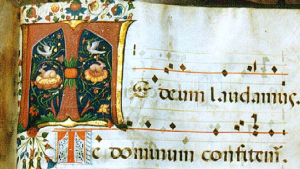 TE deum laudamus
Te dominum confitem